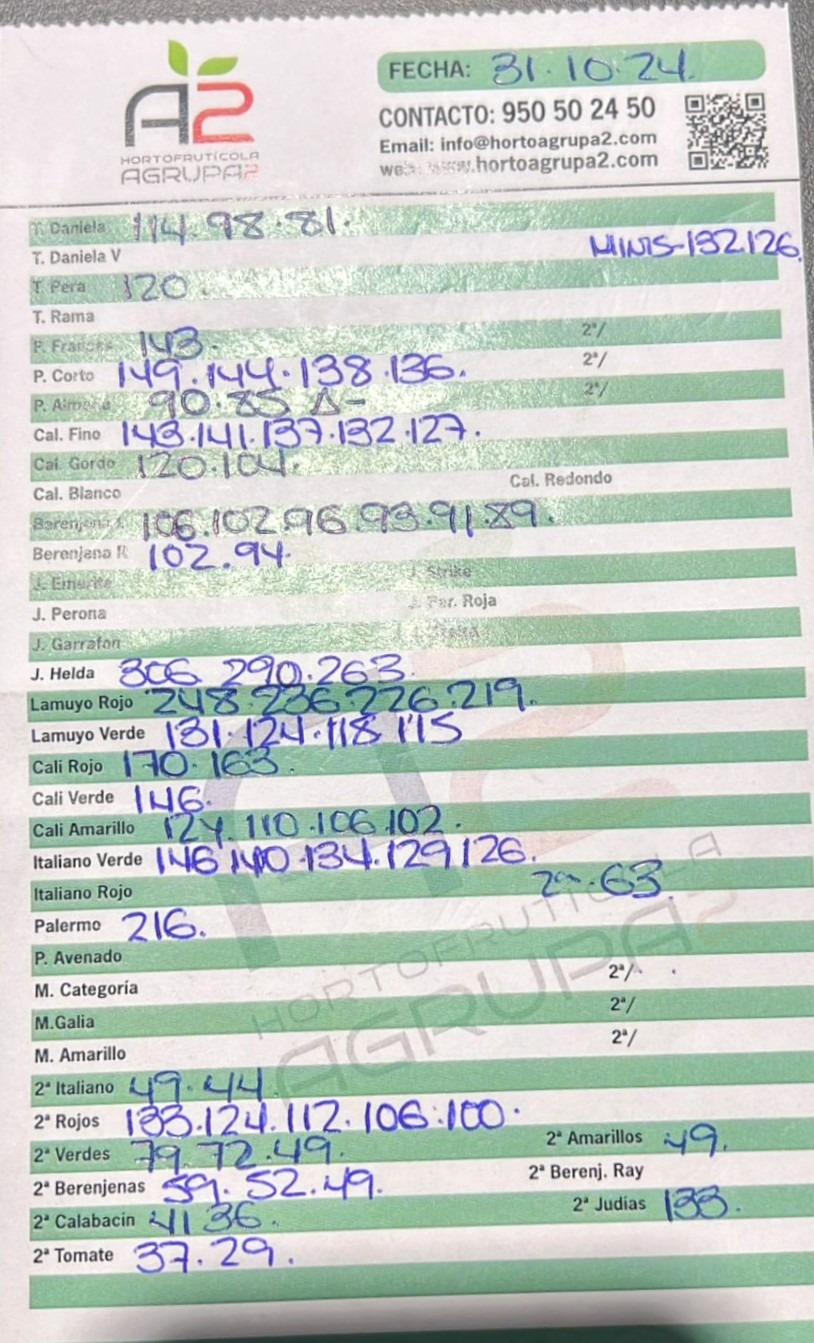 A2
HORTOFRUTÍCOLA
AGRUPA2
FECHA: 31.10.24.
CONTACTO: 950 50 24 50
Email: info@hortoagrupa2.com
web: www.hortoagrupa2.com
T. Daniela 114.98.81.
T. Daniela V MINIS-132.126.
T. Pera 120.
T. Rama
P. Francés 143. 2ª/
P. Corto 149.144.138.136. 2ª/
P. Almería 90.85 Δ- 2ª/
Cal. Fino 143.141.137.132.127.
Cal. Gordo 120.104.
Cal. Blanco Cal. Redondo
Berenjena L 106.102.96.93.91.89.
Berenjena R 102.94.
J. Emerite J. Strike
J. Perona J. Per. Roja
J. Garrafon
J. Helda 306.290.263.
Lamuyo Rojo 248.236.226.219.
Lamuyo Verde 131.124.118.115
Cali Rojo 170.163.
Cali Verde 146.
Cali Amarillo 124.110.106.102.
Italiano Verde 146.140.134.129.126.
Italiano Rojo 2ª.63.
Palermo 216.
P. Avenado
M. Categoría 2ª/.
M.Galia 2ª/
M. Amarillo 2ª/
2ª Italiano 49.44
2ª Rojos 133.124.112.106.100.
2ª Verdes 79.72.49. 2ª Amarillos 49.
2ª Berenjenas 59.52.49. 2ª Berenj. Ray
2ª Calabacin 41.36. 2ª Judias 133.
2ª Tomate 37.29.
HORTOFRUTÍCOLA
AGRUPA2